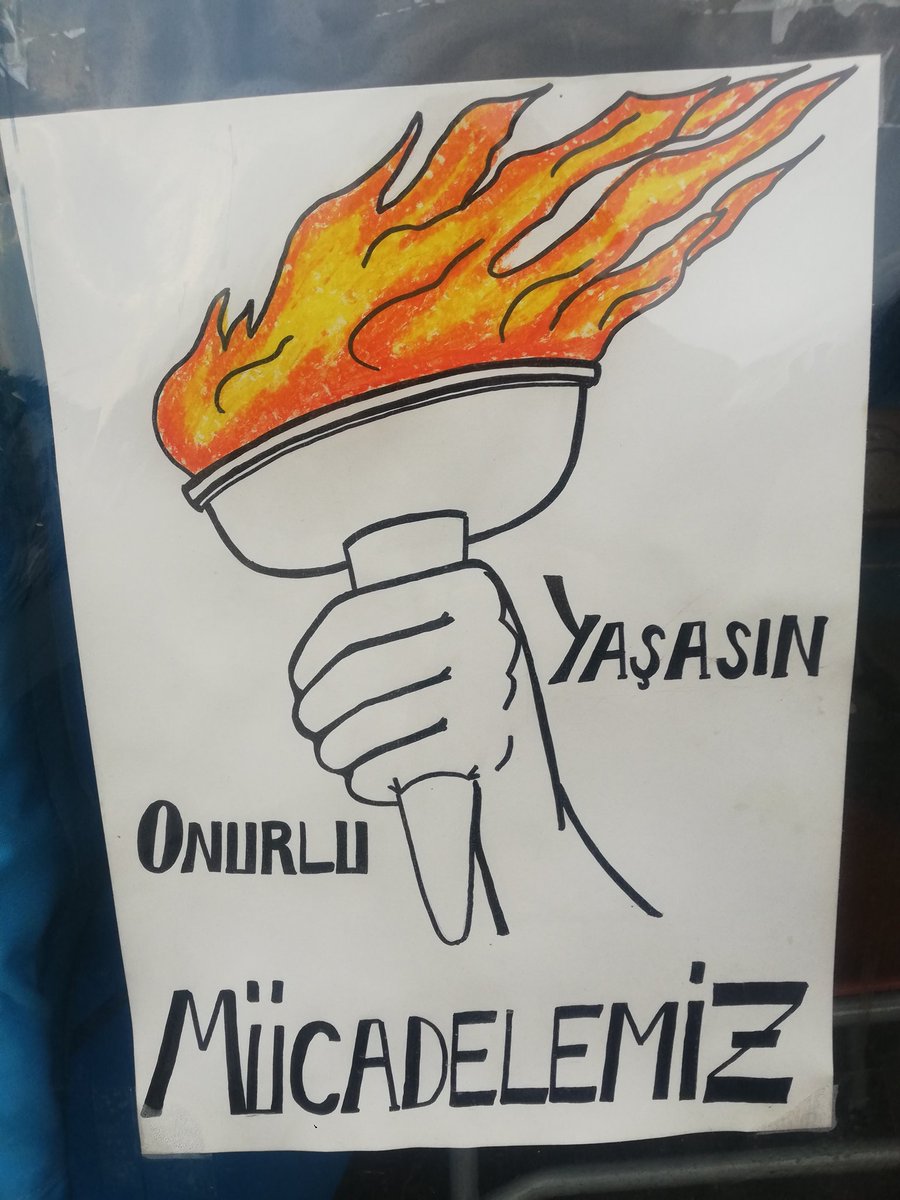 YAŞASIN
ONURLU
MÜCADELEMİZ